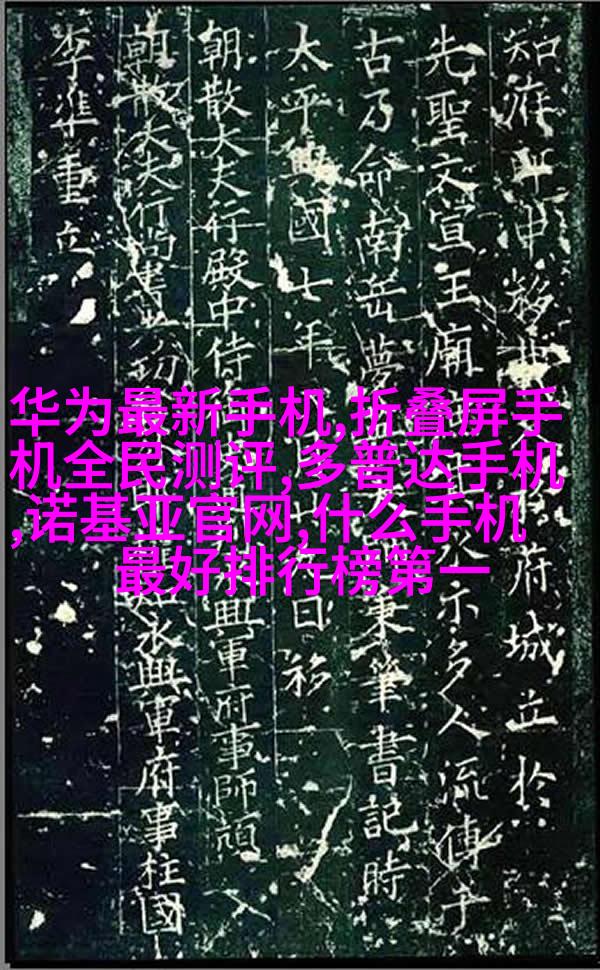 知府申移府城立於
先聖文宣王廟示多人流傳千
古乃命南岳夢秉筆書記時
太平興國七年日移
朝散大夫行殿中侍興軍府事師頏
朝散大夫行尚書永興軍府事柱國
李準重立
华为最新手机,折叠屏手
机全民测评,多普达手机
,诺基亚官网,什么手机
最好排行榜第一